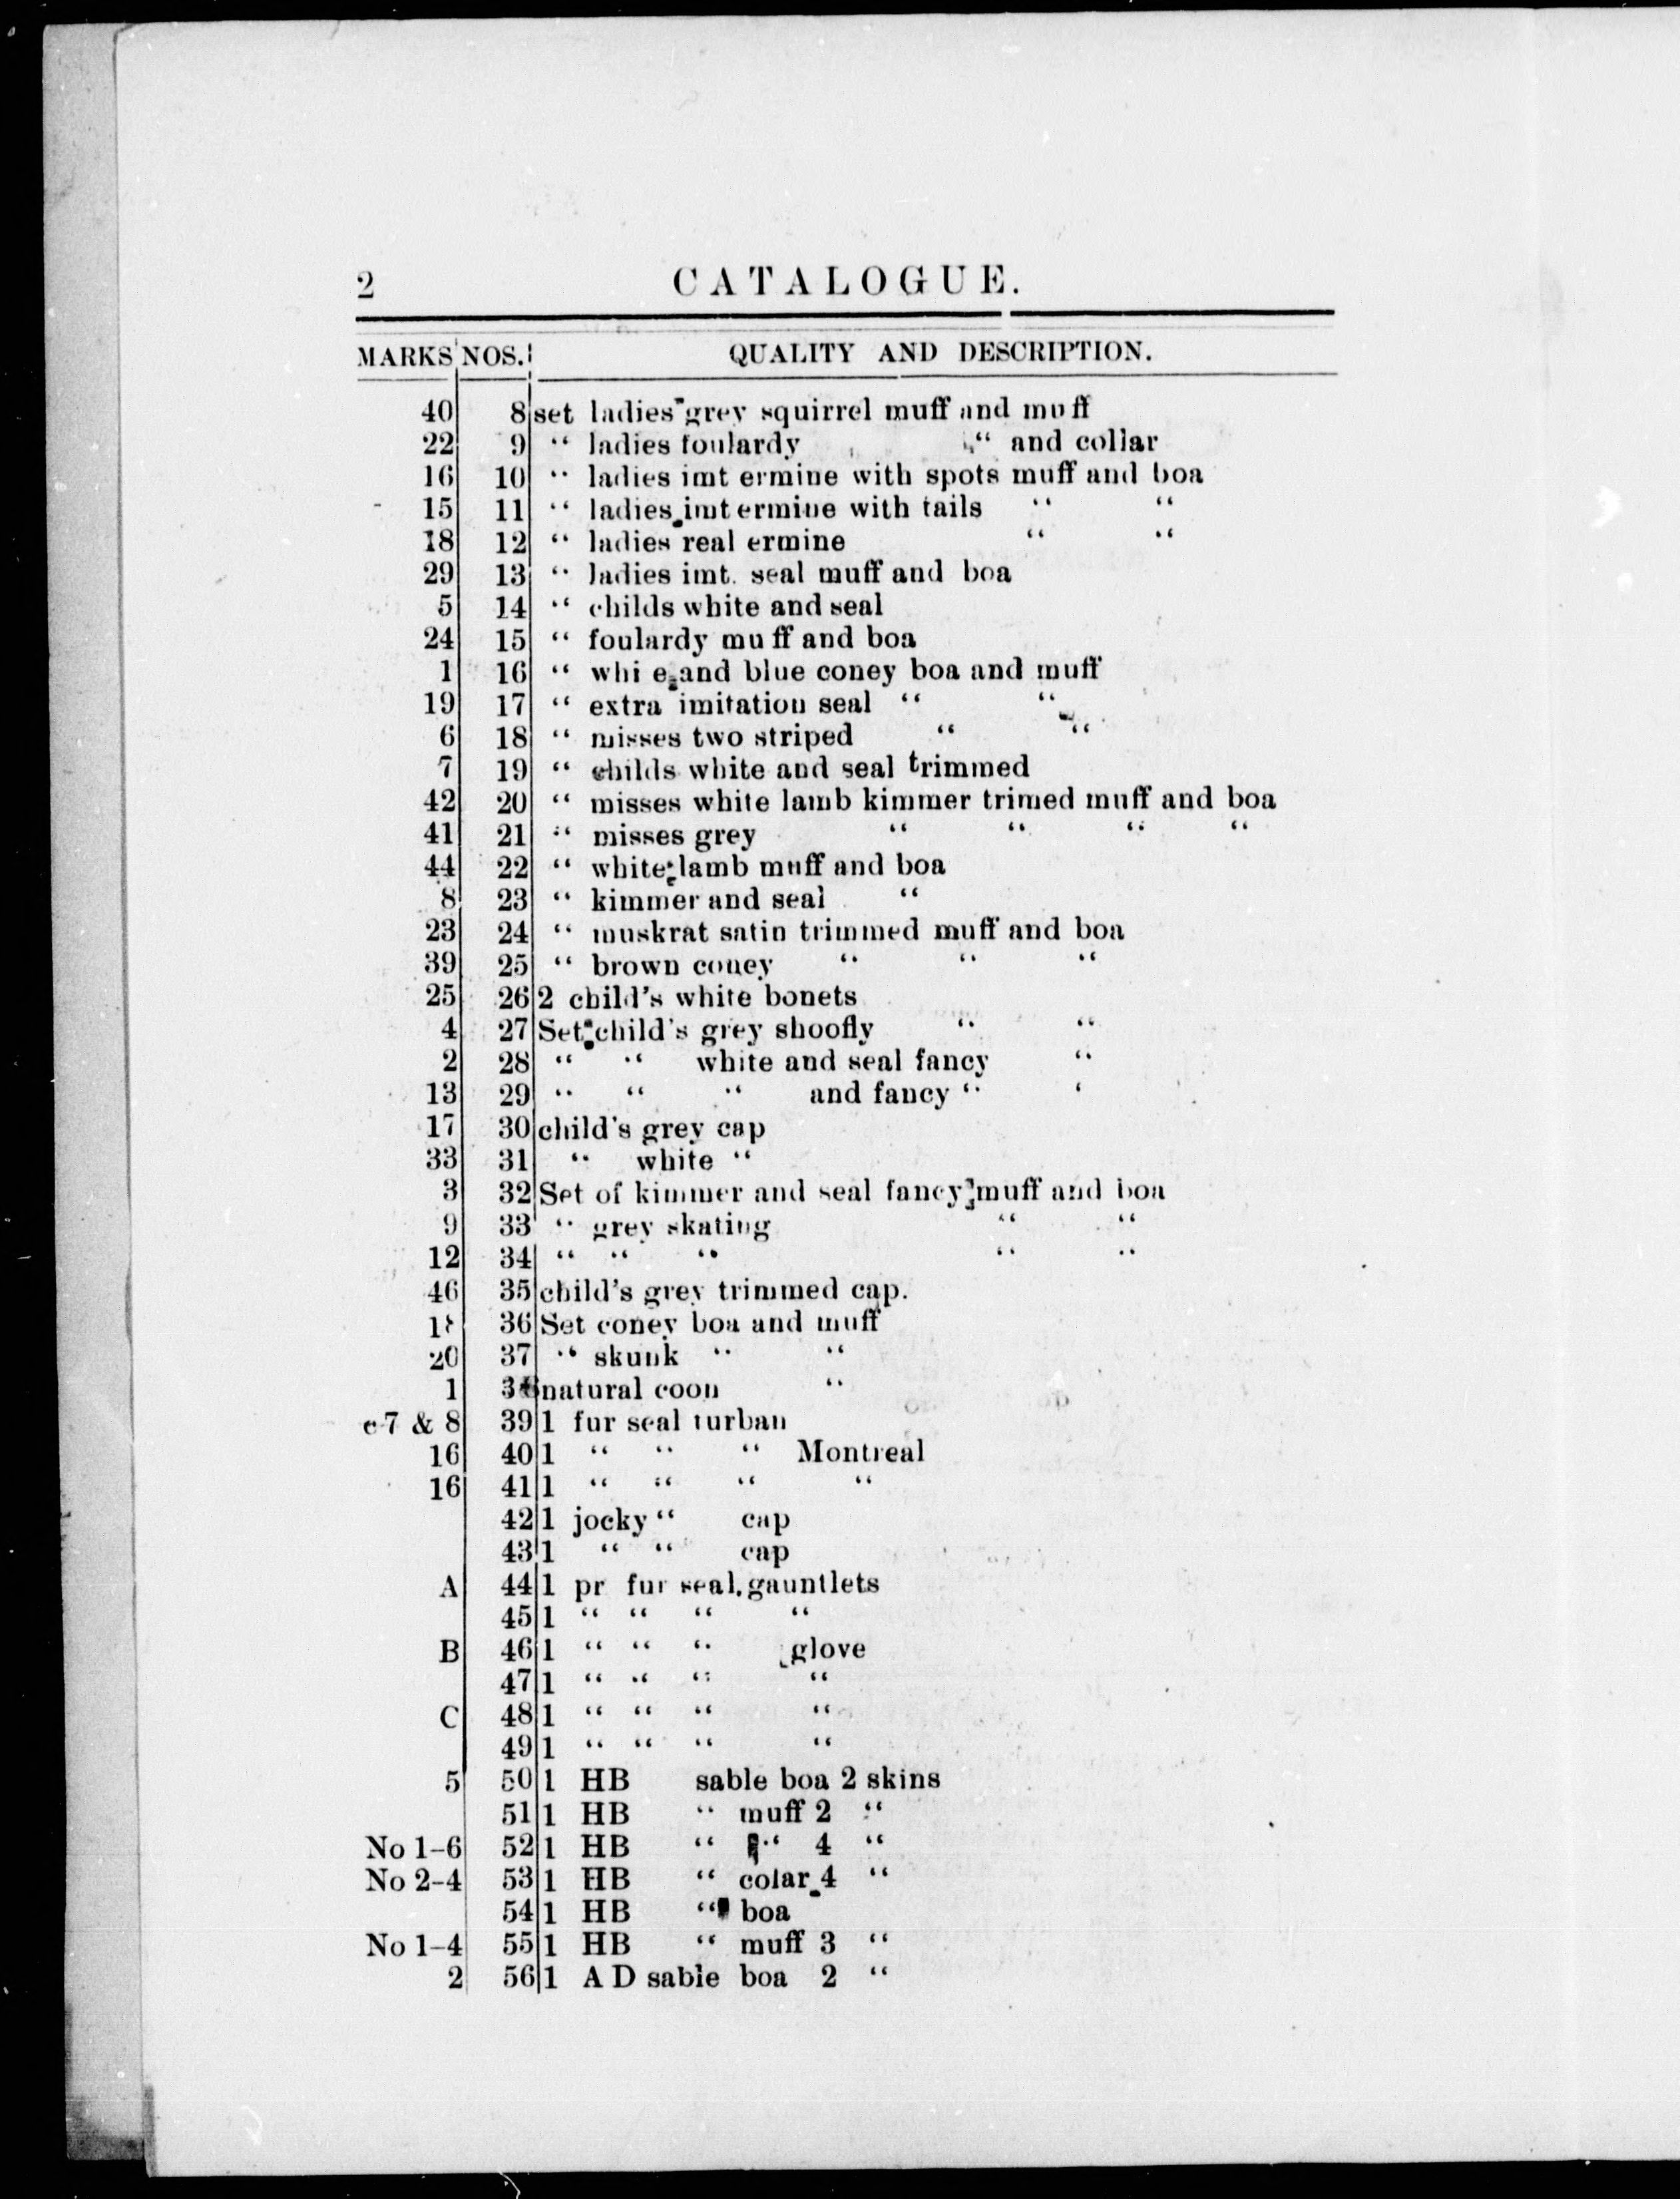 2 CATALOGUE.
MARKS NOS. QUALITY AND DESCRIPTION.
40 8 set ladies grey squirrel muff and muff
22 9 “ ladies foulardy “ and collar
16 10 “ ladies imt ermine with spots muff and boa
15 11 “ ladies imt ermine with tails “ “
18 12 “ ladies real ermine “ “
29 13 “ ladies imt. seal muff and boa
5 14 “ childs white and seal
24 15 “ foulardy muff and boa
1 16 “ whi e and blue coney boa and muff
19 17 “ extra imitation seal “ “
6 18 “ misses two striped “ “
7 19 “ childs white and seal trimmed
42 20 “ misses white lamb kimmer trimed muff and boa
41 21 “ misses grey “ “ “ “
44 22 “ white lamb muff and boa
8 23 “ kimmer and seal “
23 24 “ muskrat satin trimmed muff and boa
39 25 “ brown coney “ “ “
25 26 2 child's white bonets
4 27 Set child's grey shoofly “ “
2 28 “ “ white and seal fancy “
13 29 “ “ “ and fancy “ ‘
17 30 child's grey cap
33 31 “ white “
3 32 Set of kimmer and seal fancy muff and boa
9 33 “ grey skating “ “
12 34 “ “ “ “ “
46 35 child's grey trimmed cap.
18 36 Set coney boa and muff
20 37 “ skunk “ “
1 38 natural coon “
c 7 & 8 39 1 fur seal turban
16 40 1 “ “ “ Montreal
16 41 1 “ “ “ “
42 1 jocky “ cap
43 1 “ “ cap
A 44 1 pr fur seal gauntlets
45 1 “ “ “ “
B 46 1 “ “ “ glove
47 1 “ “ “ “
C 48 1 “ “ “ “
49 1 “ “ “ “
5 50 1 HB sable boa 2 skins
51 1 HB “ muff 2 “
No 1-6 52 1 HB “ “ 4 “
No 2-4 53 1 HB “ colar 4 “
54 1 HB “ boa
No 1-4 55 1 HB “ muff 3 “
2 56 1 A D sable boa 2 “